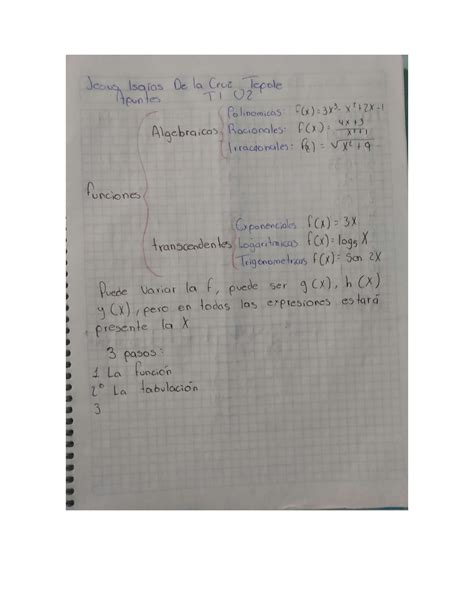 Jesus Isaías De la Cruz Tepole
Apuntes T1 U2
Polinomicas: f(x)=3x³-x²+2x-1
Algebraicas Racionales: f(x)= 4x+3 / x²+1
Irracionales: f(x) = √x²+9
funciones
Exponenciales f(x)=3x
transcendentes Logaritmicas f(x)=log5 X
Trigonometricas f(x)= Sen 2X
Puede variar la f, puede ser g(x), h(x)
y(x), pero en todas las expresiones estará
presente la X
3 pasos:
1 La función
2° La tabulación
3